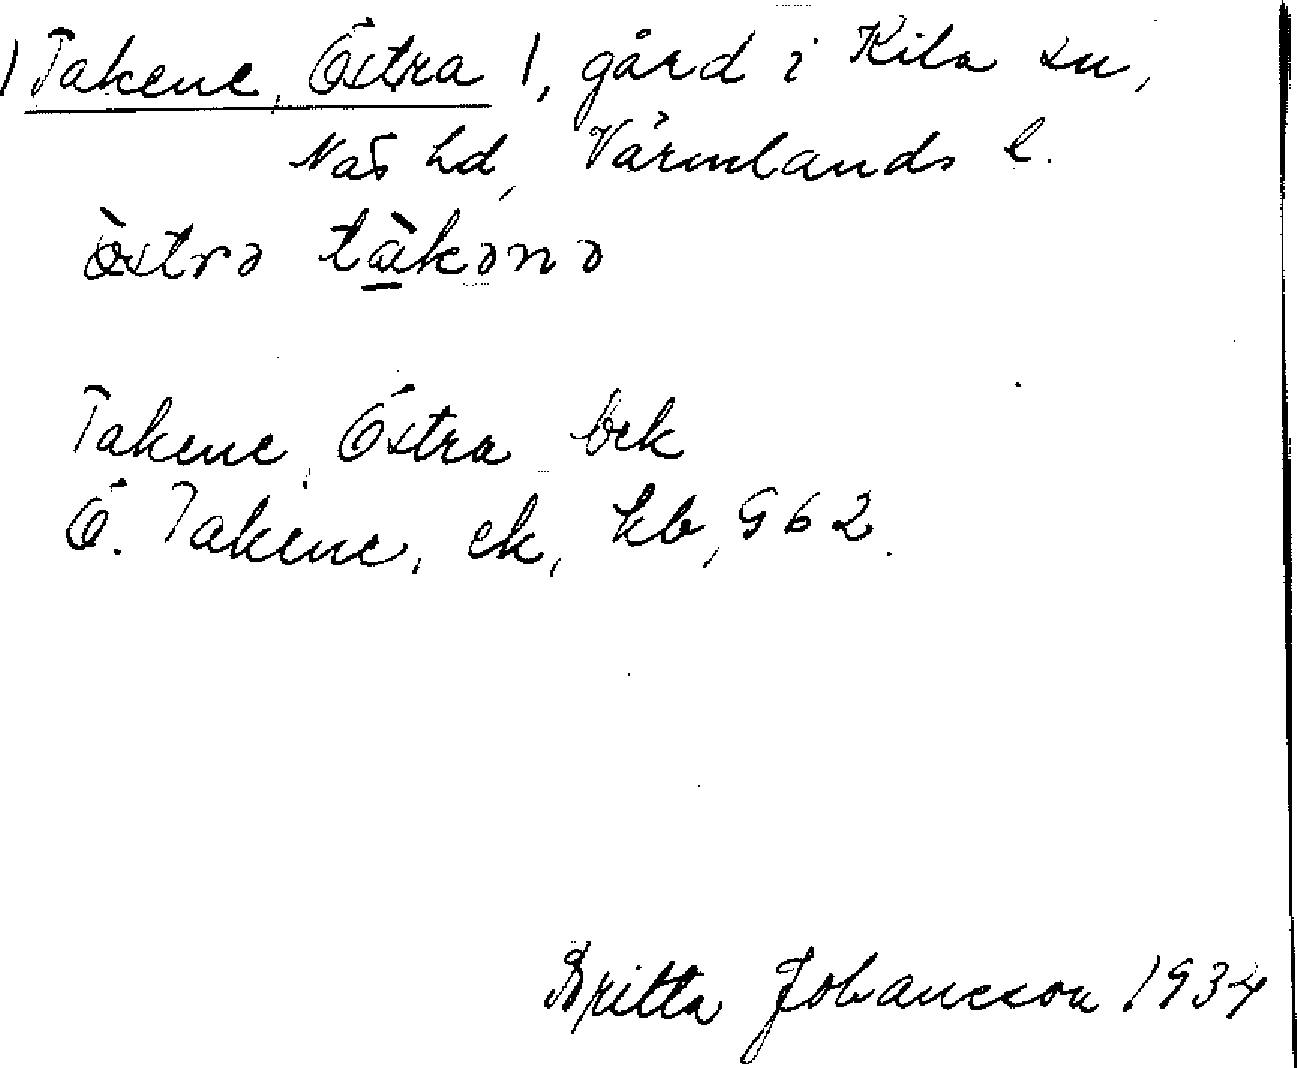 1) Takene, Östra 1, gård i Kila sn,
Näs hd, Värmlands l.
östrə tàkənə
Takene, Östra brk
Ö. Takene, ek, kb, 962.
Britta Johansson 1934